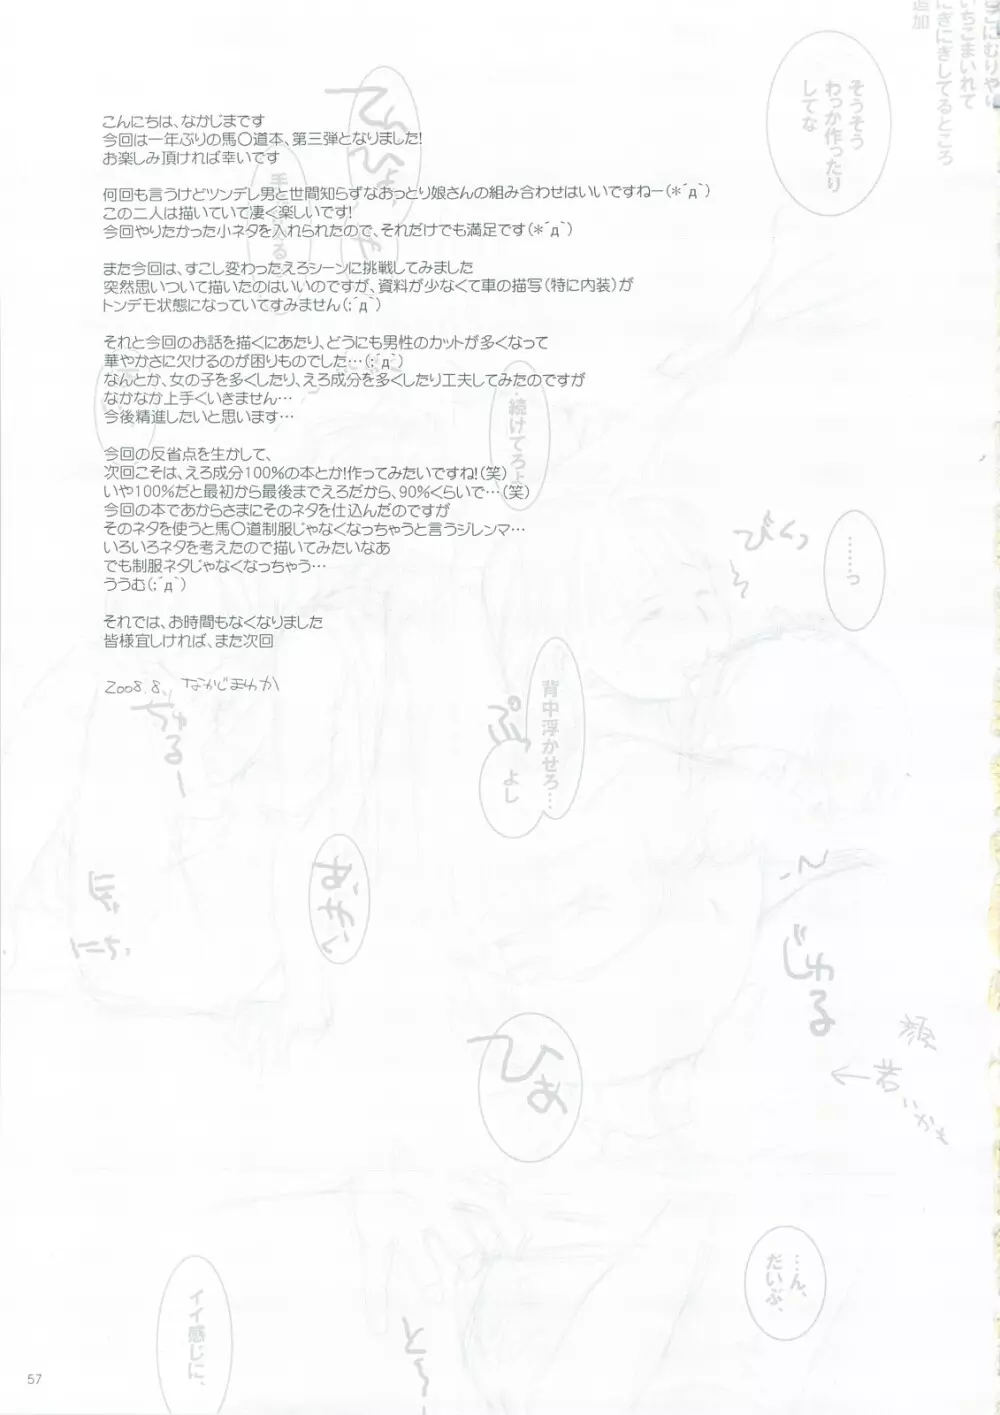 こんにちは、なかじまです
今回は一年ぶりの馬〇道本、第三弾となりました!
お楽しみ頂ければ幸いです
何回も言うけどツンデレ男と世間知らずなおっとり娘さんの組み合わせはいいですねー(*´д`)
この二人は描いていて凄く楽しいです!
今回やりたかった小ネタを入れられたので、それだけでも満足です(*´д`)
また今回は、すこし変わったえろシーンに挑戦してみました
突然思いついて描いたのはいいのですが、資料が少なくて車の描写(特に内装)が
トンデモ状態になっていてすみません(;´д`)
それと今回のお話を描くにあたり、どうにも男性のカットが多くなって
華やかさに欠けるのが困りものでした…(;´д`)
なんとか、女の子を多くしたり、えろ成分を多くしたり工夫してみたのですが
なかなか上手くいきません…
今後精進したいと思います…
今回の反省点を生かして、
次回こそは、えろ成分100%の本とか!作ってみたいですね!(笑)
いや100%だと最初から最後までえろだから、90%くらいで…(笑)
今回の本であからさまにそのネタを仕込んだのですが
そのネタを使うと馬〇道制服じゃなくなっちゃうと言うジレンマ…
いろいろネタを考えたので描いてみたいなあ
でも制服ネタじゃなくなっちゃう…
ううむ(;´д`)
それでは、お時間もなくなりました
皆様宜しければ、また次回
2008.8. なかじまゆか
いちごまいれて
にぎにぎしてるところ
追加
そうそう
わっか作ったり
してな
てんひょ
や
…続けてろよ
びくっ
………っ
背中浮かせろ…
よし
ぷっ
ちゅるー
じゅる
ひぁ
←若いかも
…ん、
だいぶ、
イイ感じに、
と〜
57